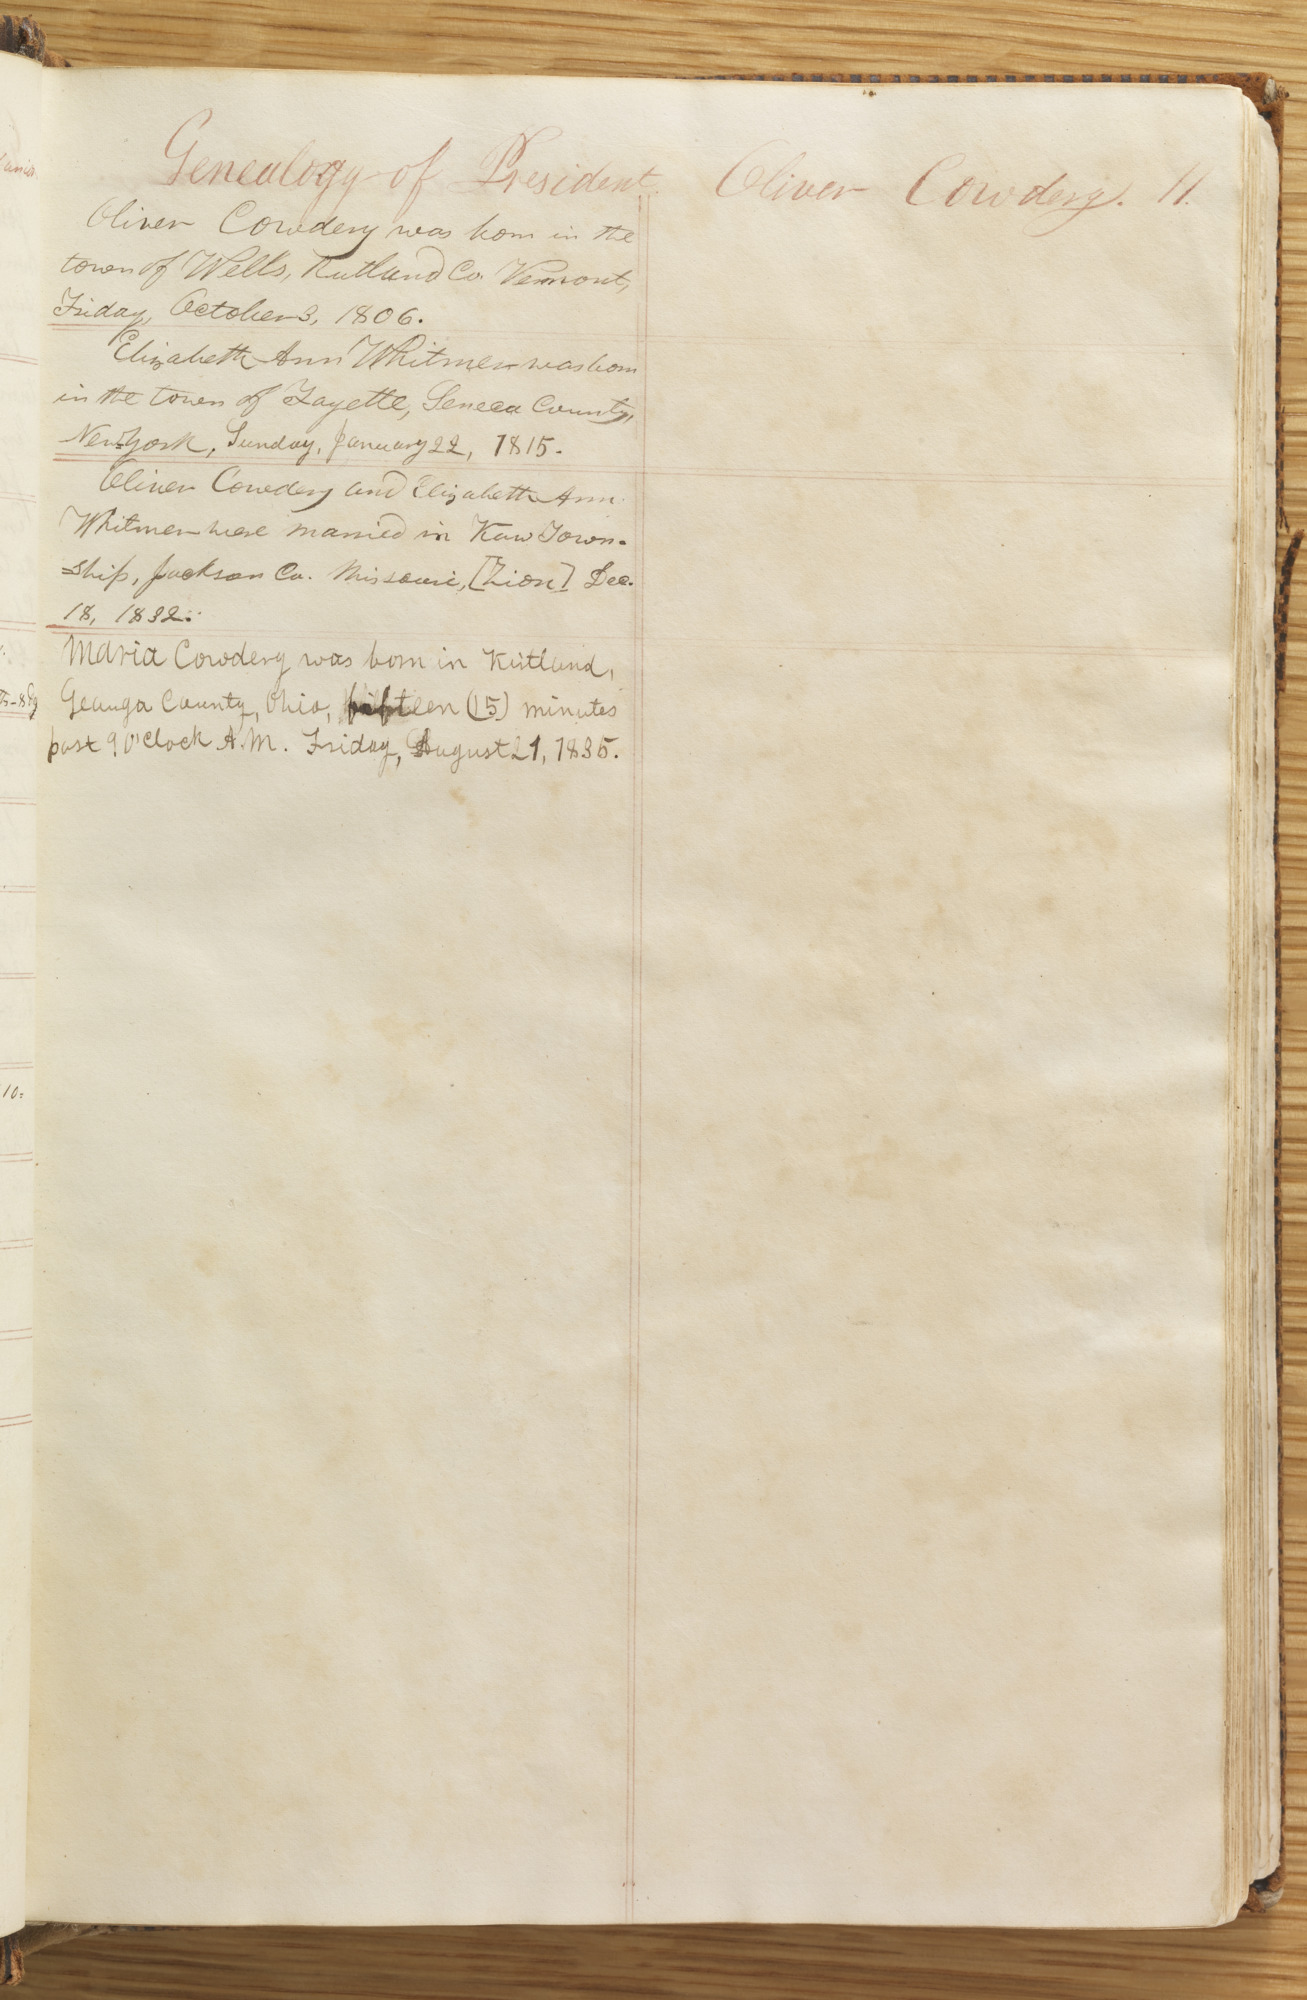 Genealogy of President Oliver Cowdery. 11.
Oliver Cowdery was born in the
town of Wells, Rutland Co. Vermont,
Friday, October 3, 1806.
Elizabeth Ann Whitmer was born
in the town of Fayette, Seneca County,
New York, Sunday, January 22, 1815.
Oliver Cowdery and Elizabeth Ann
Whitmer were married in Kaw Town-
ship, Jackson Co. Missouri, [Zion] Dec.
18, 1832.
Maria Cowdery was born in Kirtland,
Geauga County, Ohio, fifteen (15) minutes
past 9 O'clock A.M. Friday, August 21, 1835.
10.